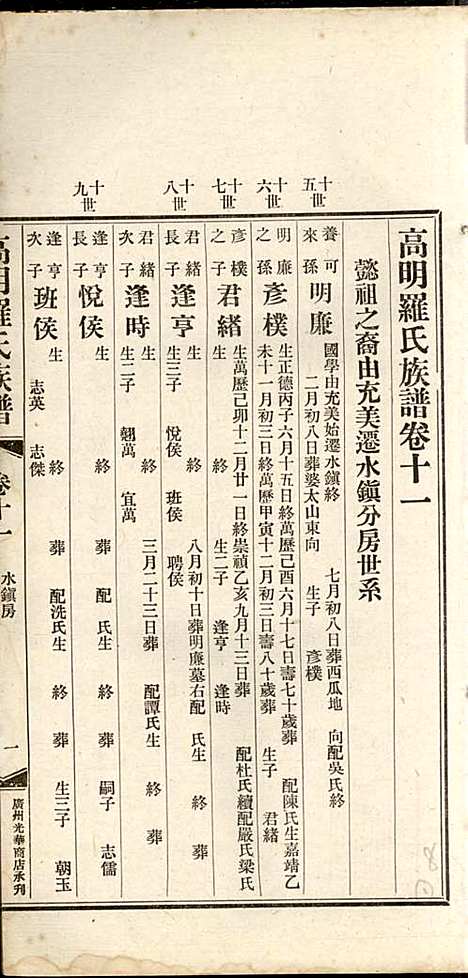 高明羅氏族譜卷十一
懿祖之裔由充美遷水鎭分房世系
十五世
養可來孫 明廉 國學由充美始遷水鎭終 七月初八日葬西瓜地 向配吳氏終
二月初八日葬婆太山東向 生子 彥樸
十六世
明廉之孫 彥樸 生正德丙子六月十五日終萬歷己酉六月十七日壽七十歲葬 配陳氏生嘉靖乙
未十一月初三日終萬歷甲寅十二月初三日壽八十歲葬 生子 君緒
十七世
彥樸之子 君緒 生萬歷己卯十二月廿一日終崇禎乙亥九月十三日葬 配杜氏續配嚴氏梁氏
生二子 逢亨 逢時
十八世
君緒長子 逢亨 生 終 八月初十日葬明廉墓右配 氏生 終 葬
生三子 悅侯 班侯 聘侯
君緒次子 逢時 生 終 三月二十三日葬 配譚氏生 終 葬
生二子 翹萬 宜萬
十九世
逢亨長子 悅侯 生 終 葬 配 氏生 終 葬 嗣子 志儒
逢亨次子 班侯 生 終 葬 配冼氏生 終 葬 生三子 朝玉
志英 志傑
高明羅氏族譜 卷十一 水鎭房 一 廣州光華商店承刋